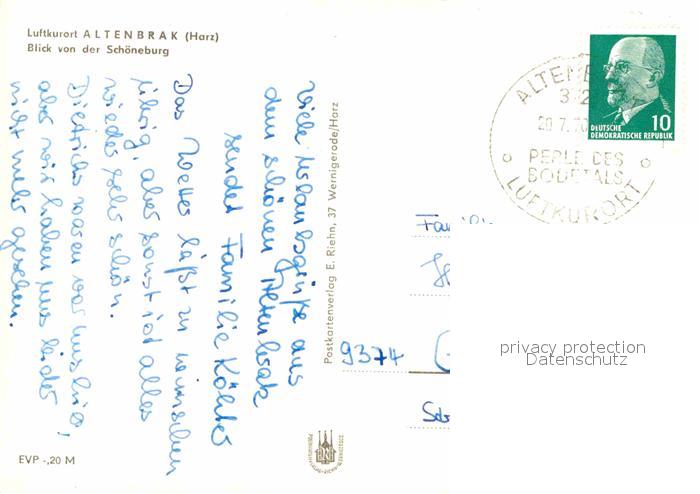 Luftkurort ALTENBRAK (Harz)
Blick von der Schöneburg
Viele Urlaubsgrüße aus
dem schönen Altenbrak
sendet Familie Köhler
Das Wetter läßt zu wünschen
übrig, aber sonst ist alles
wieder sehr schön.
Dietrichs waren vor uns hier,
aber wir haben uns leider
nicht mehr gesehen.
EVP -,20 M
Postkartenverlag E. Riehn, 37 Wernigerode/Harz
ALTENB
20.7.70
PERLE DES
BODETALS
LUFTKURORT
DEUTSCHE
DEMOKRATISCHE REPUBLIK
10
Fam
9374
privacy protection
Datenschutz